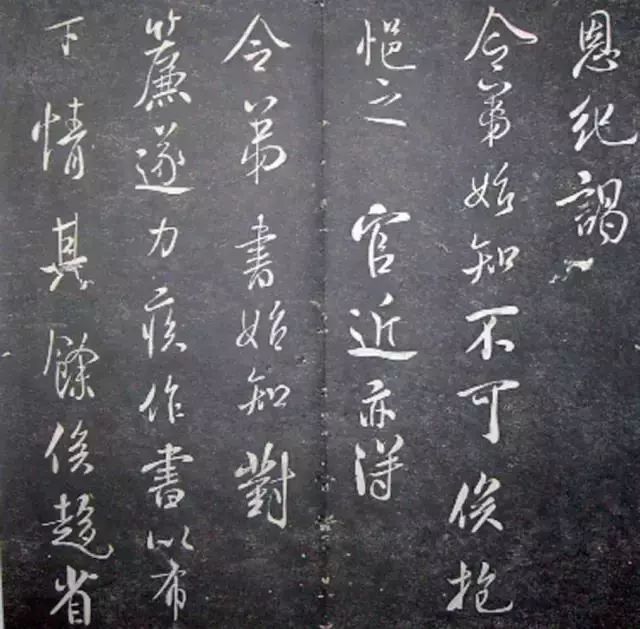 恩紀謁
令弟始知不可俟抱
悒之 官近亦得
令弟書始知對
簾遂力疾作書以布
下情其餘俟趨省